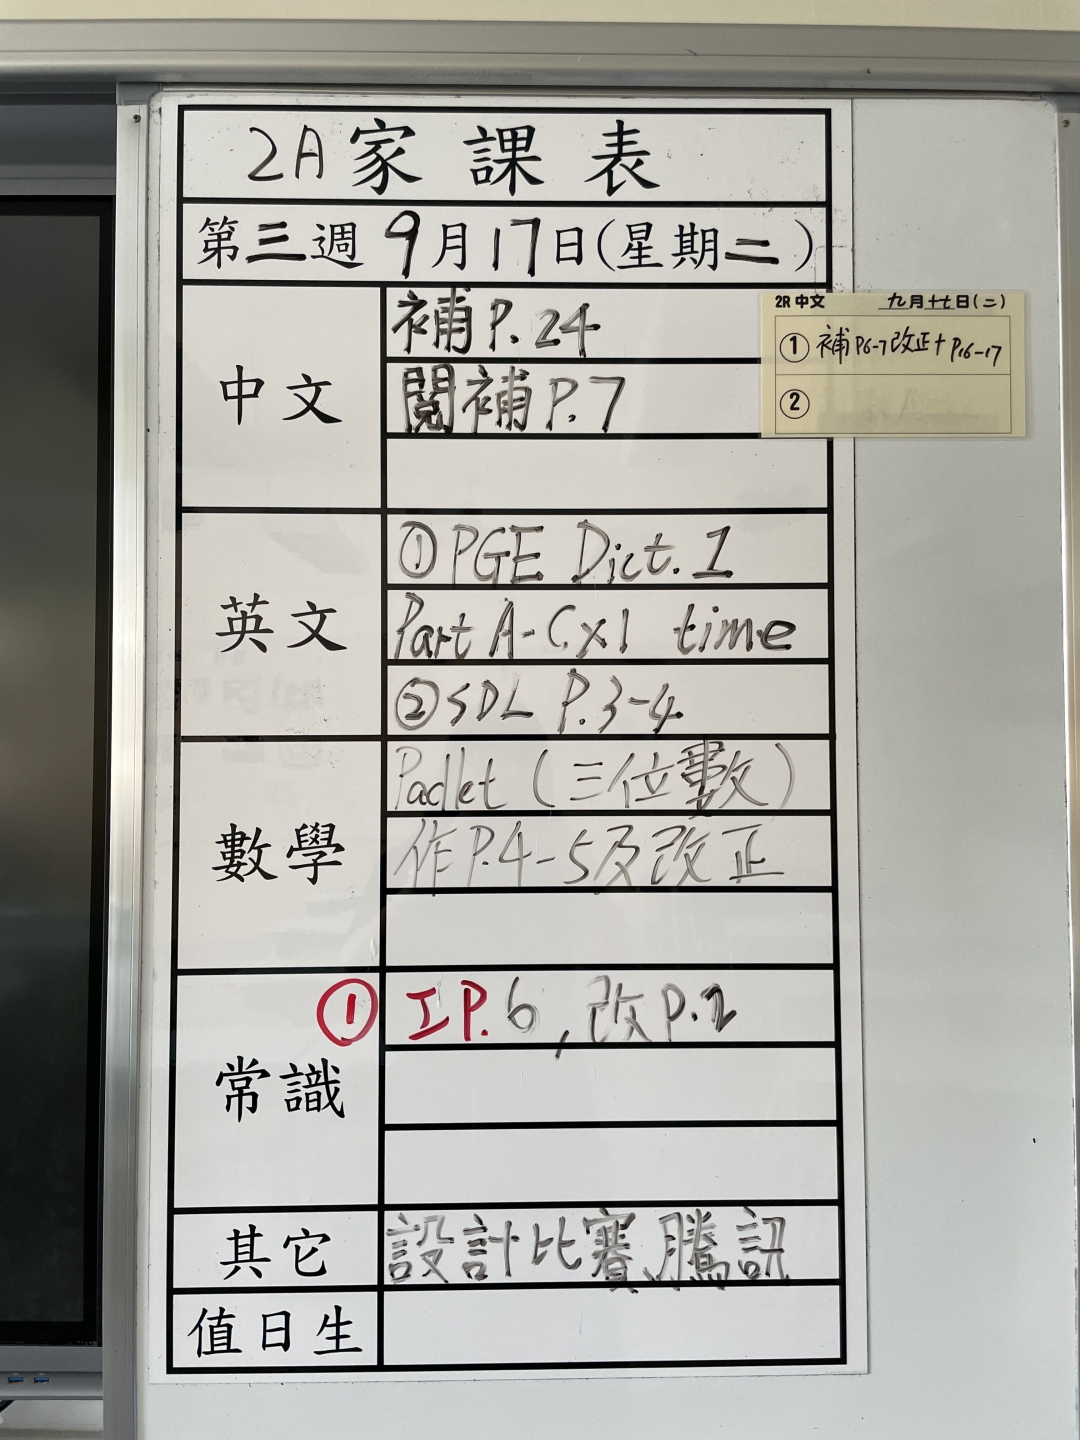 2A家課表
第三週 9月17日(星期二)
中文
補 P.24
閱補 P.7
2R 中文 九月十七日(二)
① 補 P6-7 改正 + P.16-17
②
英文
① PGE Dict. 1
Part A-C x1 time
② SDL P.3-4
數學
Padlet (三位數)
作 P.4-5及改正
常識
① 工P.6, 改P.2
其它
設計比賽、騰訊
值日生